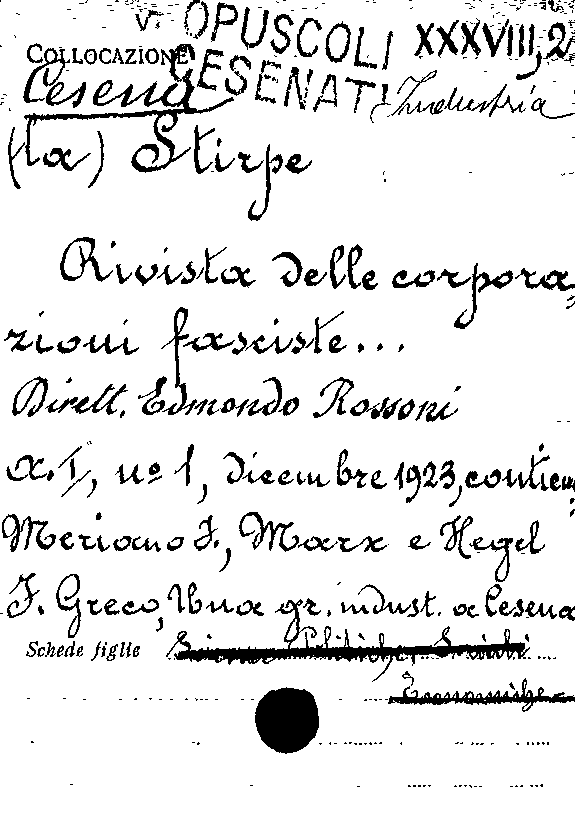 V. OPUSCOLI XXXVIII, 2
COLLOCAZIONE CESENATI
Cesena Industria
(La) Stirpe
Rivista delle corpora=
zioni fasciste...
Dirett. Edmondo Rossoni
a. I, nº 1, dicembre 1923, contien:
Meriano F., Marx e Hegel
F. Greco, Una gr. indust. a Cesena
Schede figlie Scienze Politiche, Sociali
Economiche